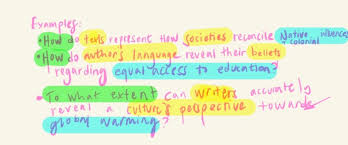 Examples:
• How do texts represent how societies reconcile Native influences
+ colonial
• How do author's language reveal their beliefs
regarding equal access to education?
• To what extent can writers accurately
reveal a culture's perspective towards
global warming?